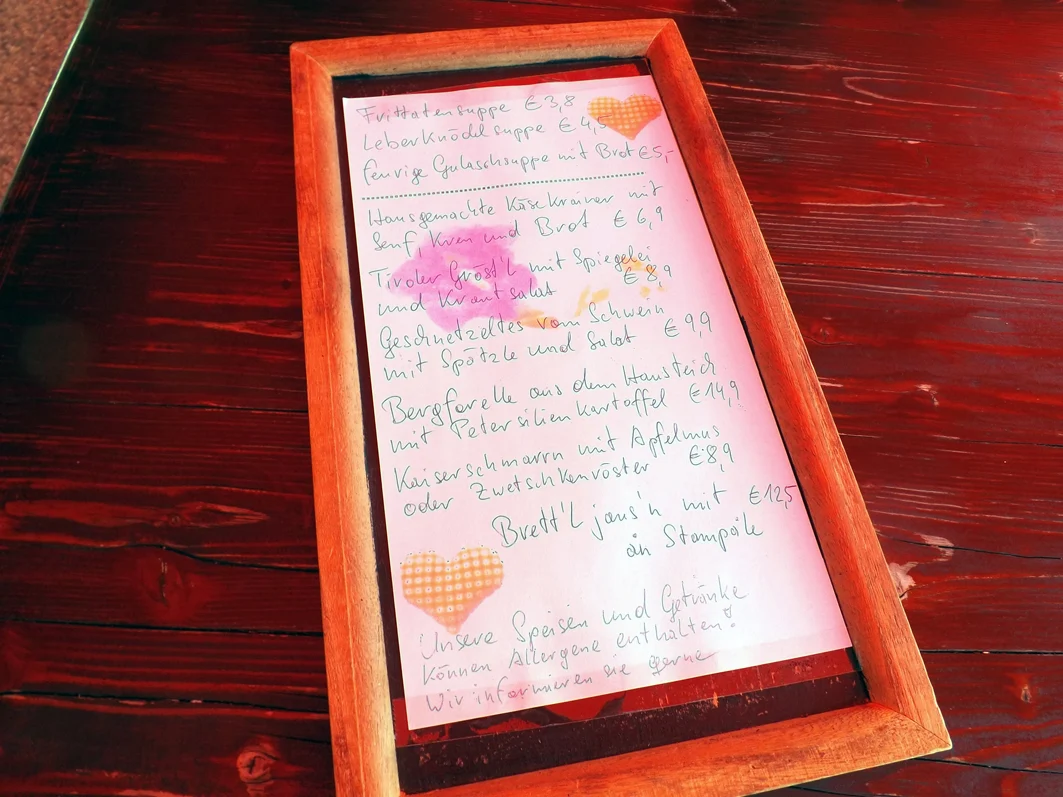 Frittatensuppe € 3,8
Leberknödelsuppe € 4,5
feurige Gulaschsuppe mit Brot €5,-
Hausgemachte Käsekrainer mit
Senf, Kren und Brot € 6,9
Tiroler Gröst'l mit Spiegelei
und Krautsalat € 8,9
Geschnetzeltes vom Schwein
mit Spätzle und Salat € 9,9
Bergforelle aus dem Hausteich
mit Petersilienkartoffel €14,9
Kaiserschmarrn mit Apfelmus
oder Zwetschkenröster €8,9
Brett'l jaus'n mit €12,5
än Stampäle
Unsere Speisen und Getränke
können Allergene enthalten!
Wir informieren sie gerne